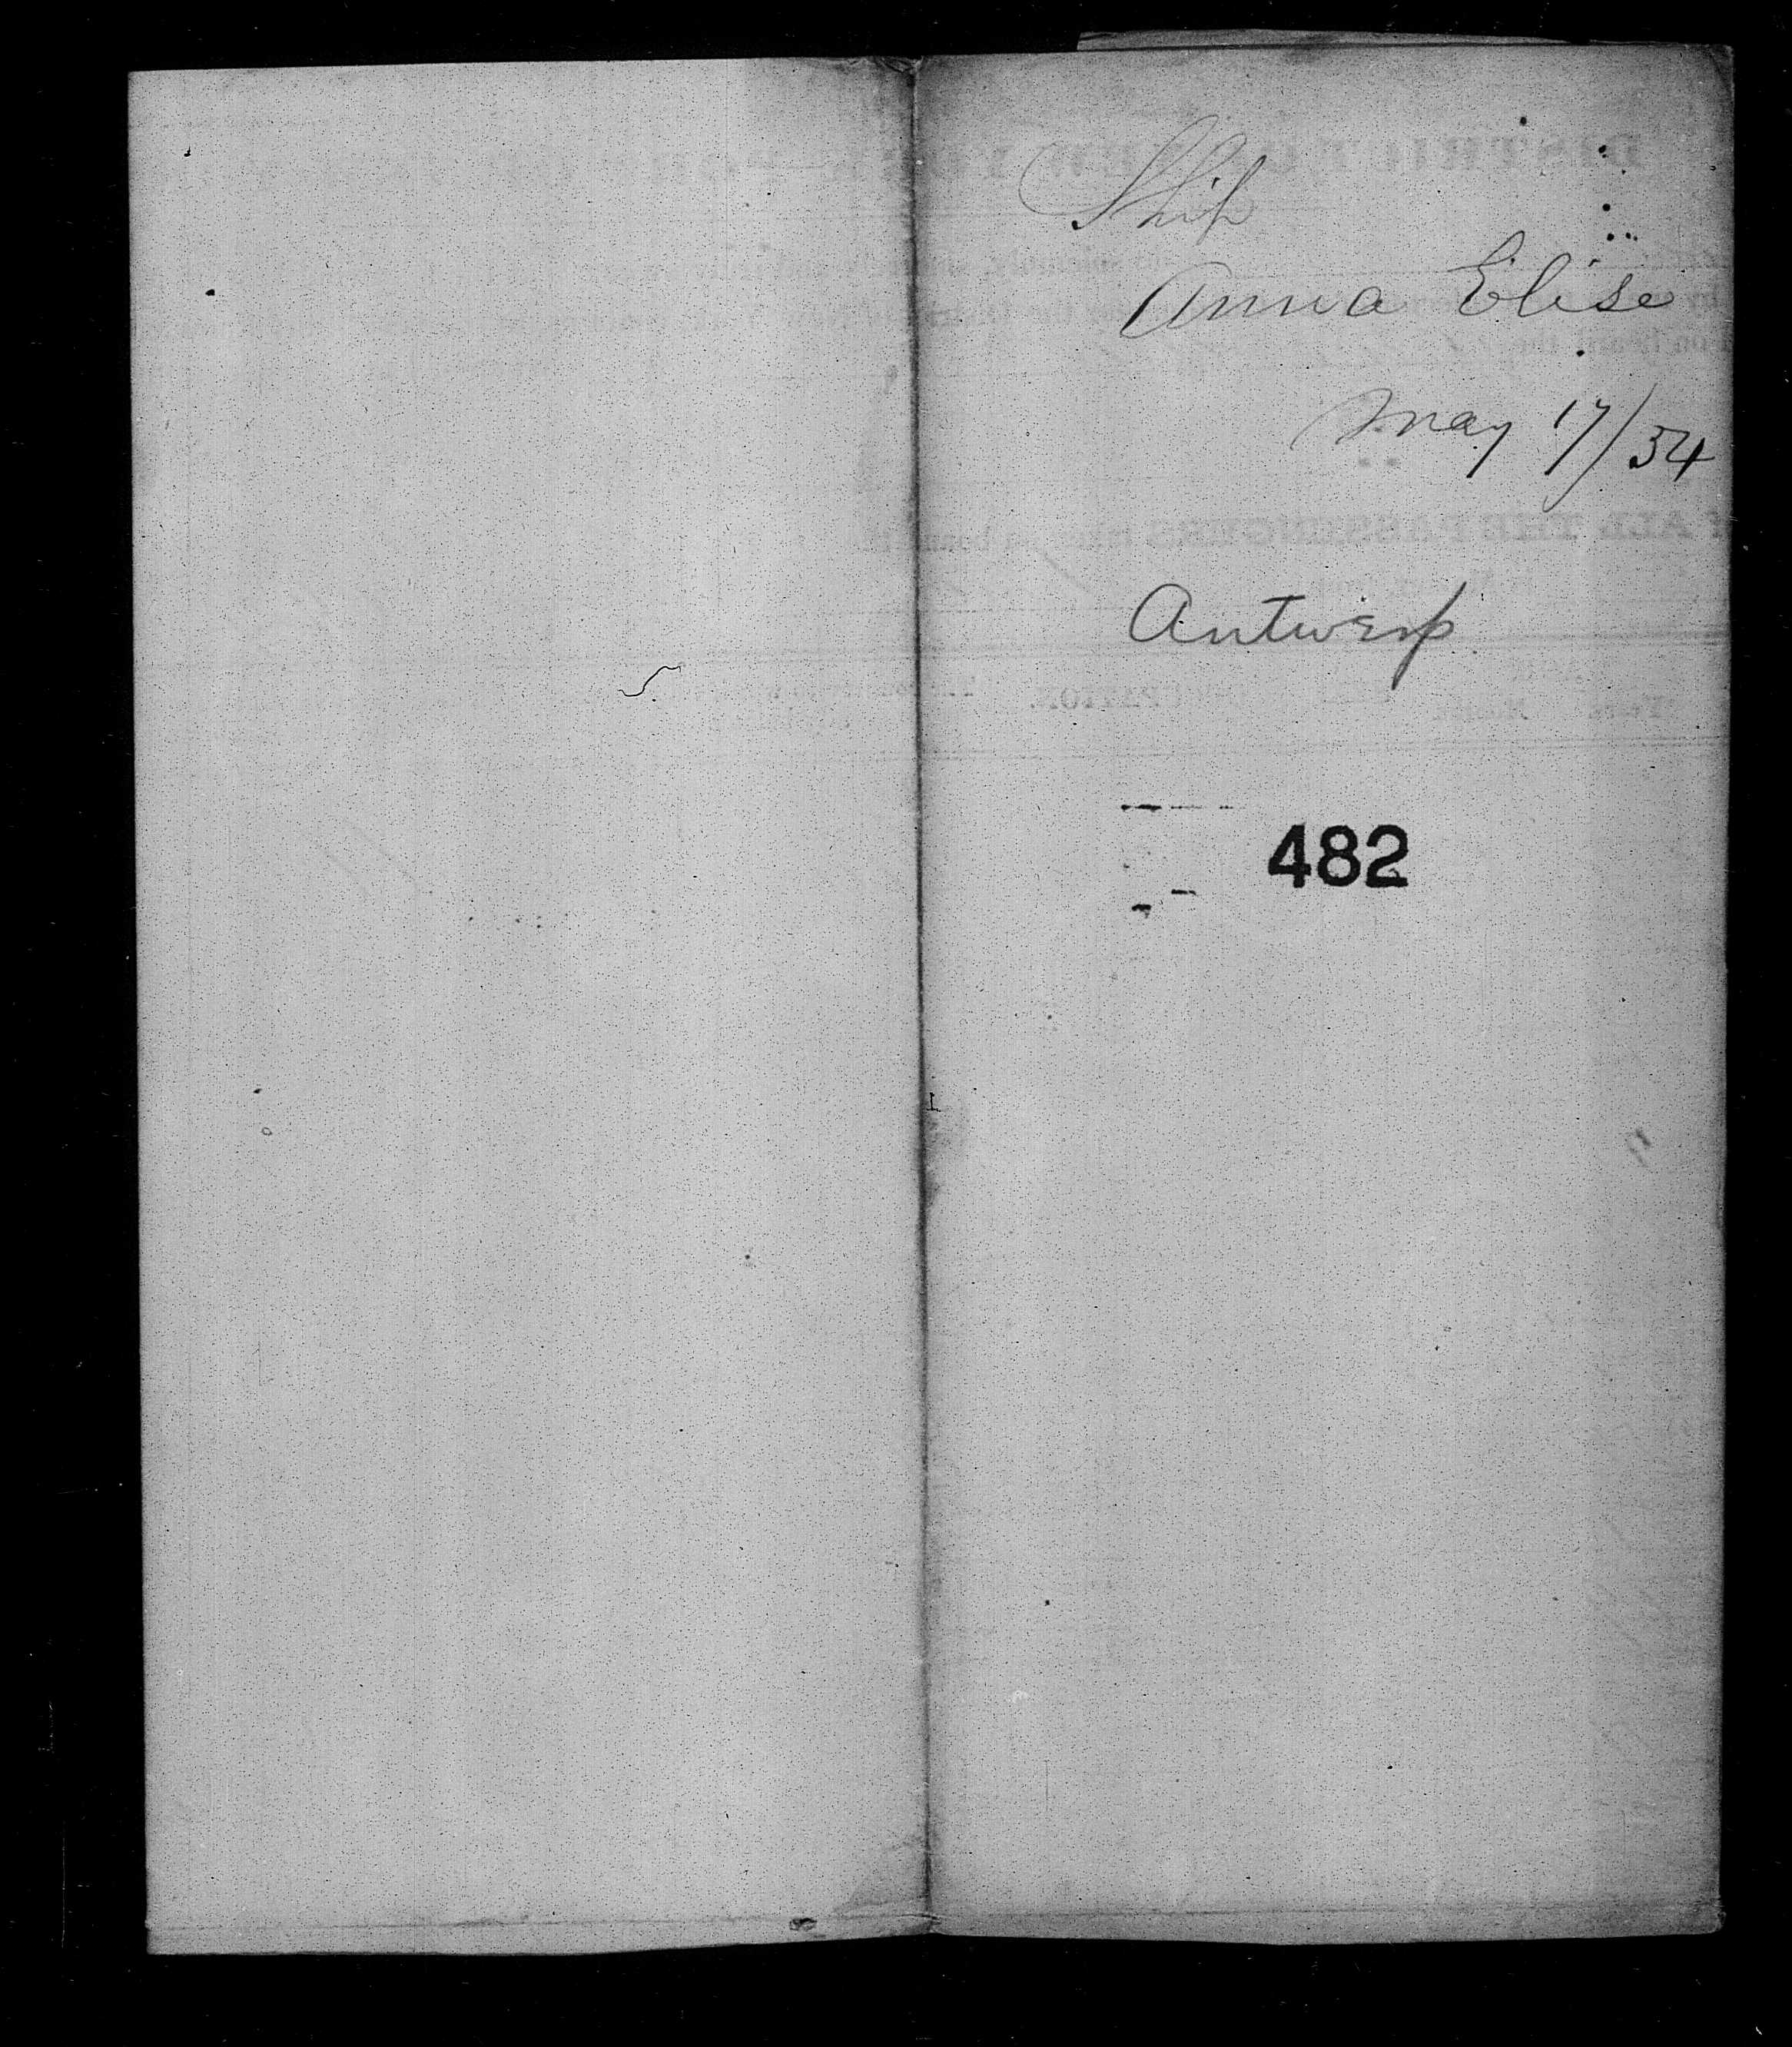 Ship
Anna Elise
May 17/54
Antwerp
482